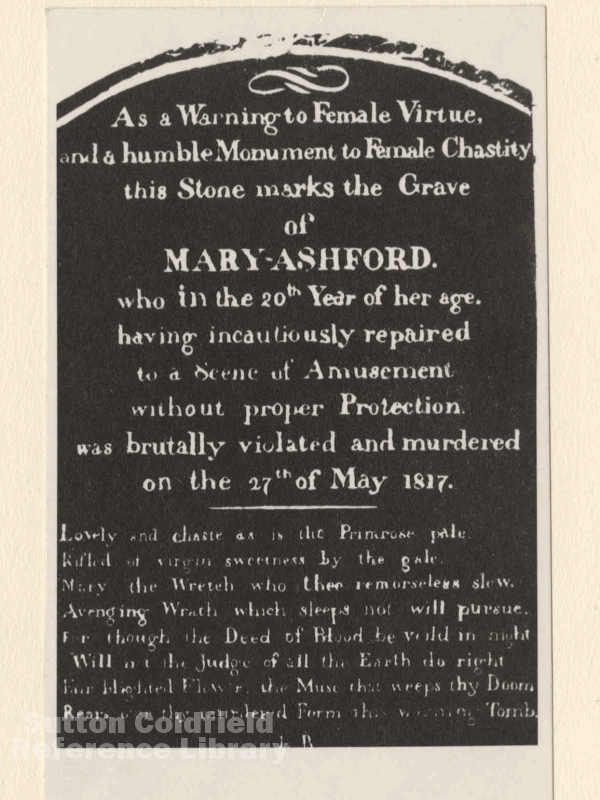 As a Warning to Female Virtue,
and a humble Monument to Female Chastity
this Stone marks the Grave
of
MARY-ASHFORD.
who in the 20th Year of her age.
having incautiously repaired
to a Scene of Amusement
without proper Protection.
was brutally violated and murdered
on the 27th of May 1817.
Lovely and chaste as is the Primrose pale.
Rifled of virgin sweetness by the gale.
Mary the Wretch who thee remorseless slew.
Avenging Wrath which sleeps not will pursue.
For though the Deed of Blood be veild in night
Will not the Judge of all the Earth do right
Fair blighted Flower, the Muse that weeps thy Doom
Rears o'er thy murdered Form this warning Tomb.
Sutton Coldfield
Reference Library